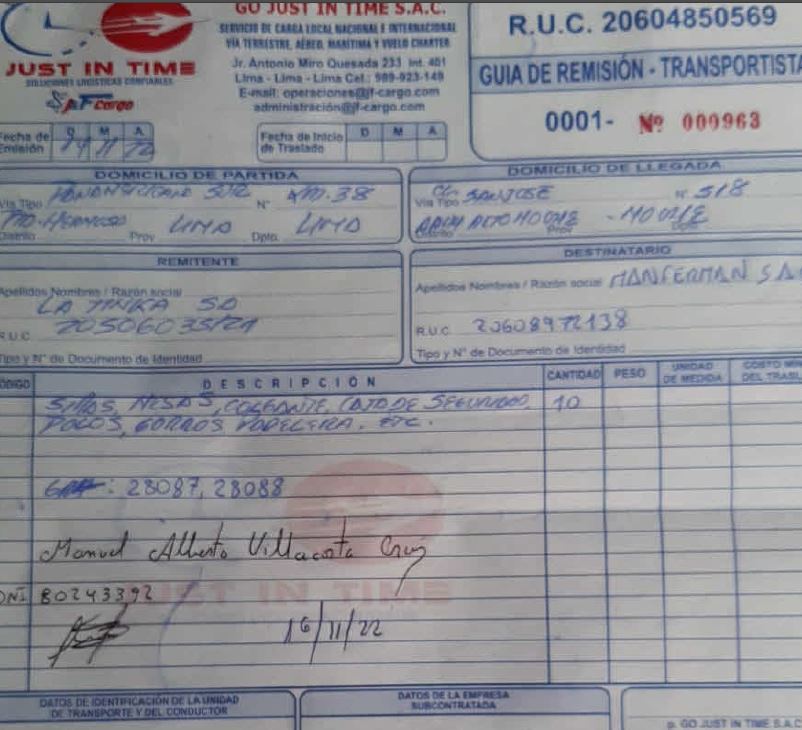 GO JUST IN TIME S.A.C.
SERVICIO DE CARGA LOCAL NACIONAL E INTERNACIONAL
VÍA TERRESTRE, AÉREO, MARÍTIMA Y VUELO CHARTER
Jr. Antonio Miro Quesada 233 Int. 401
Lima - Lima - Lima Cel.: 989-923-149
E-mail: operaciones@jf-cargo.com
administración@jf-cargo.com
JUST IN TIME
SOLUCIONES LOGÍSTICAS CONFIABLES
Cargo
R.U.C. 20604850569
GUIA DE REMISIÓN - TRANSPORTISTA
0001- Nº 000963
Fecha de Emisión D M A
11
Fecha de Inicio de Traslado D M A
DOMICILIO DE PARTIDA
Vía Tipo PANAMERICANA SUR N° KM. 38
LIMA LIMA
Distrito Prov. Dpto.
DOMICILIO DE LLEGADA
Vía Tipo SAN JOSE N° 518
ALTO
REMITENTE
Apellidos Nombres / Razón social
LA TINKA SA
R.U.C.
Tipo y N° de Documento de Identidad
DESTINATARIO
Apellidos Nombres / Razón social MANFERMAN
R.U.C. 20608972138
Tipo y N° de Documento de Identidad
CÓDIGO DESCRIPCIÓN CANTIDAD PESO UNIDAD DE MEDIDA COSTO
SILLAS, MESAS, COLGANTE, DE SEGURIDAD, 10
POLOS, GORROS, PAPELERA, ETC.
: 28087, 28088
Manuel Alberto Villacorta Cruz
DNI 80243392
16/11/22
JUST IN TIME
DATOS DE IDENTIFICACIÓN DE LA UNIDAD DE TRANSPORTE Y DEL CONDUCTOR
DATOS DE LA EMPRESA SUBCONTRATADA
p. GO JUST IN TIME S.A.C.